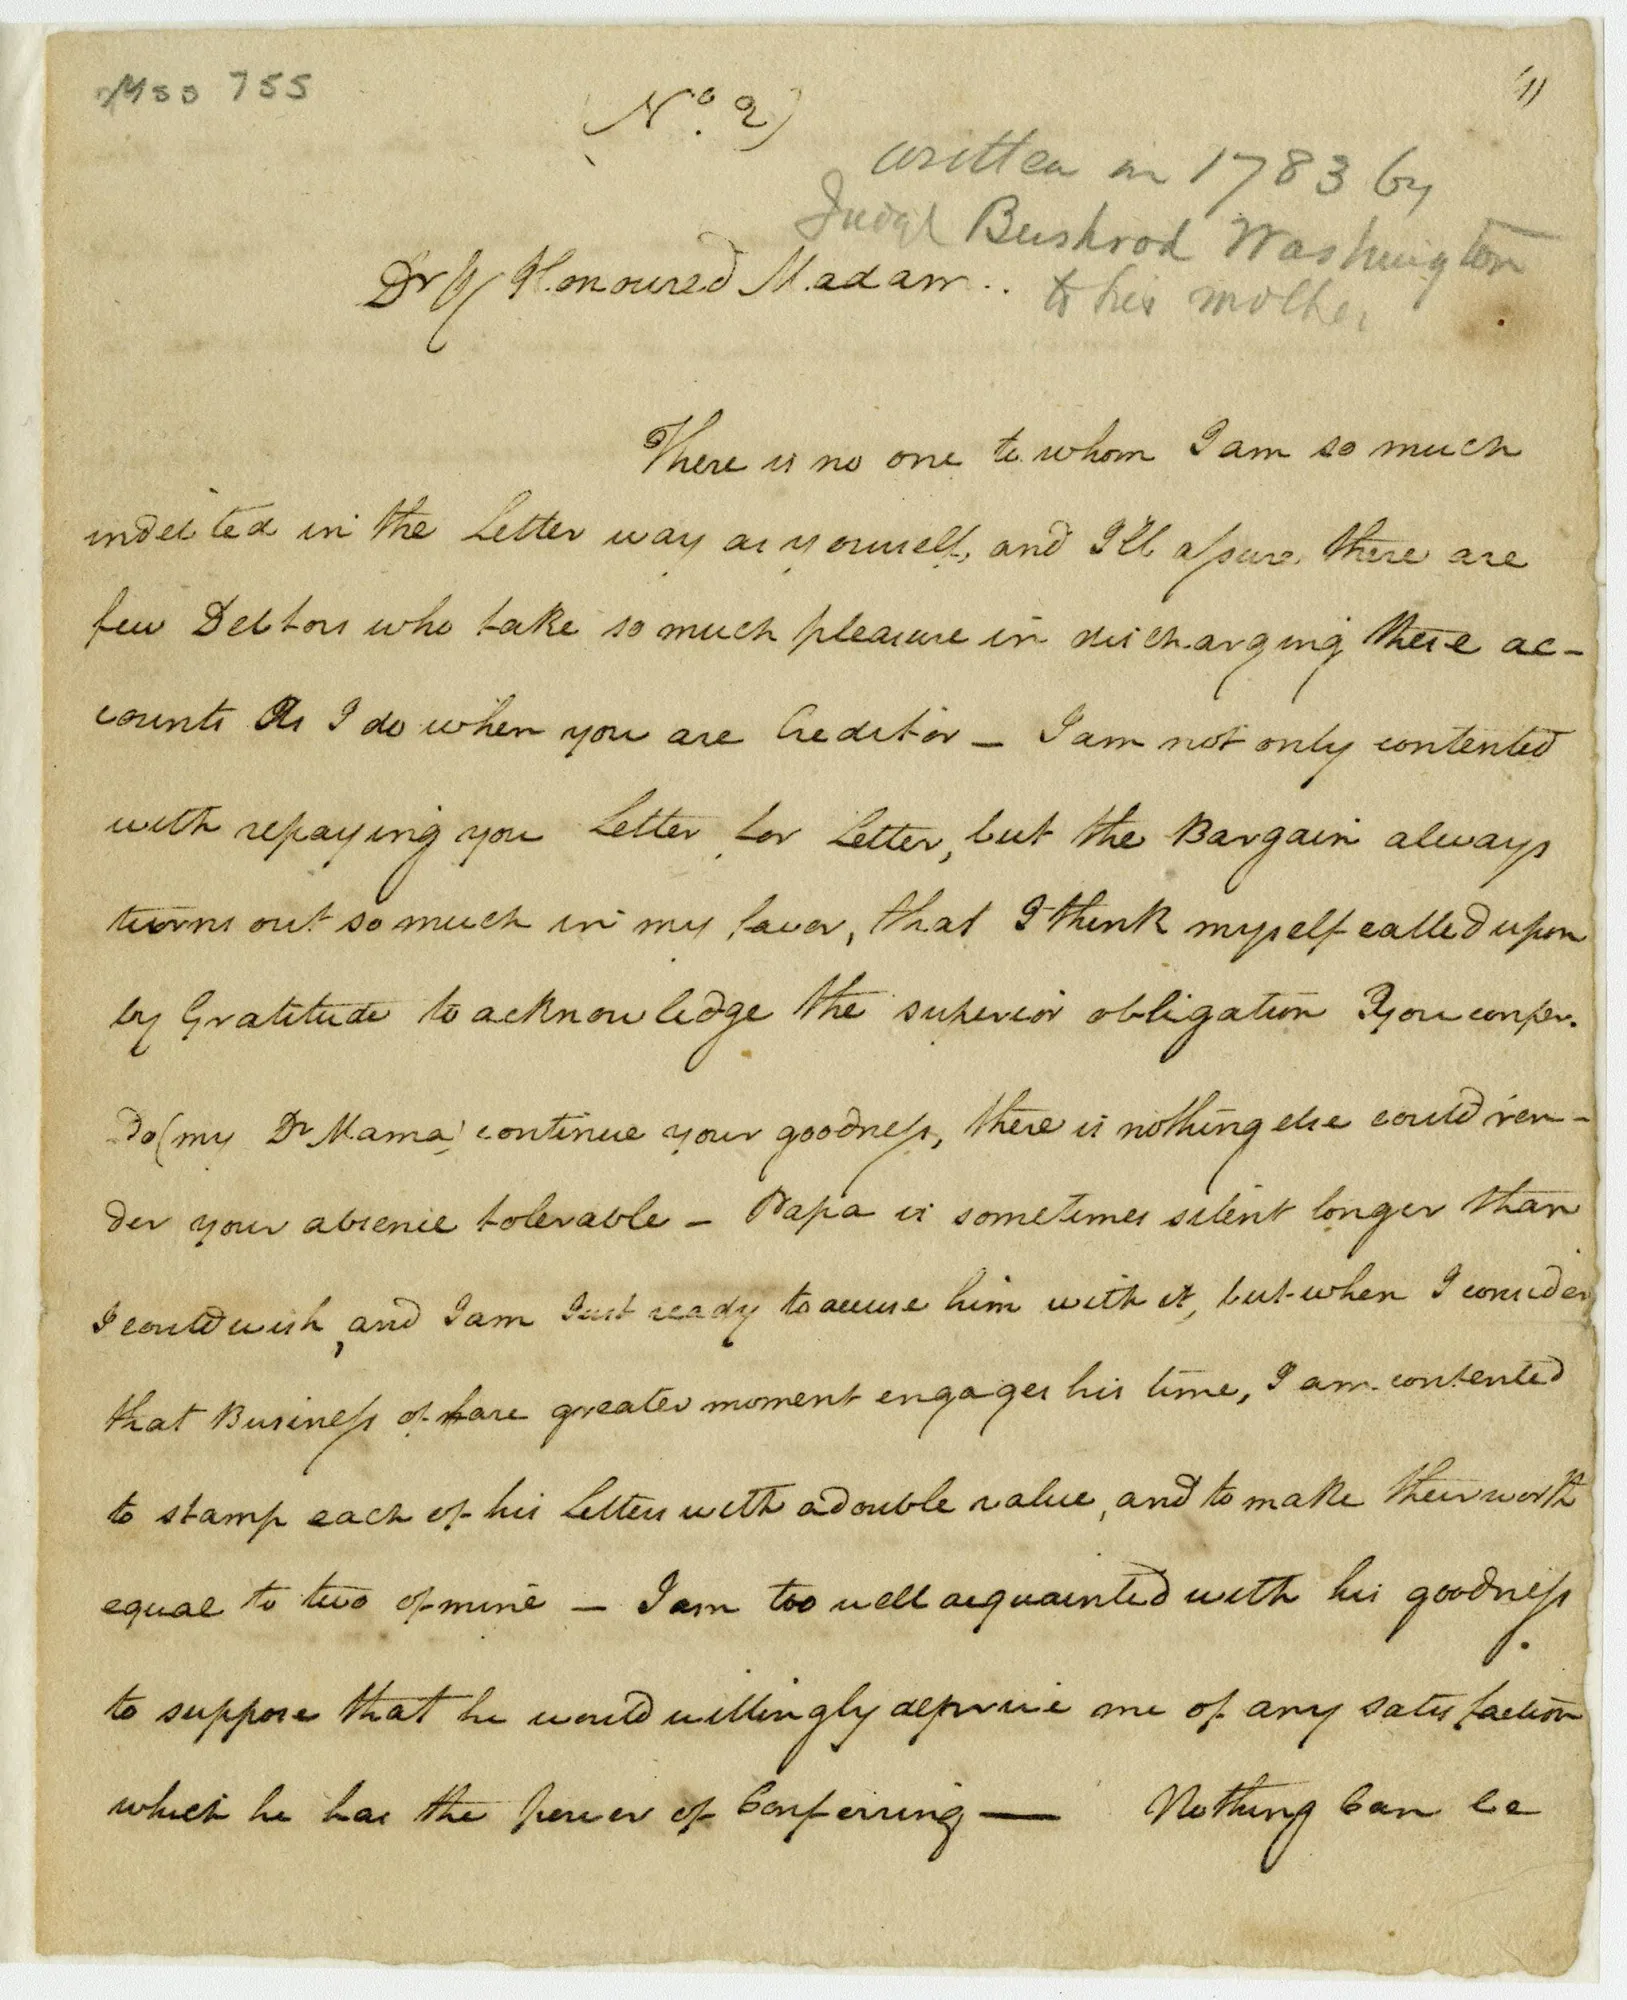 Mss 755
(No. 2)
written in 1783 by
Judge Bushrod Washington
to his mother
Dr & Honoured Madam..
There is no one to whom I am so much
indebted in the Letter way as yourself, and I'll assure there are
few Debtors who take so much pleasure in discharging these ac-
counts As I do when you are Creditor – I am not only contented
with repaying you Letter for Letter, but the Bargain always
turns out so much in my favor, that I think myself called upon
by Gratitude to acknowledge the superior obligation you confer.
Do (my Dr Mama) continue your goodness, there is nothing else could ren-
der your absence tolerable – Papa is sometimes silent longer than
I could wish, and I am Just ready to accuse him with it, but when I consider
that Business of far greater moment engages his time, I am contented
to stamp each of his Letters with a double value, and to make their worth
equal to two of mine – I am too well acquainted with his goodness
to suppose that he would willingly deprive me of any satisfaction
which he has the Power of Conferring — Nothing Can be